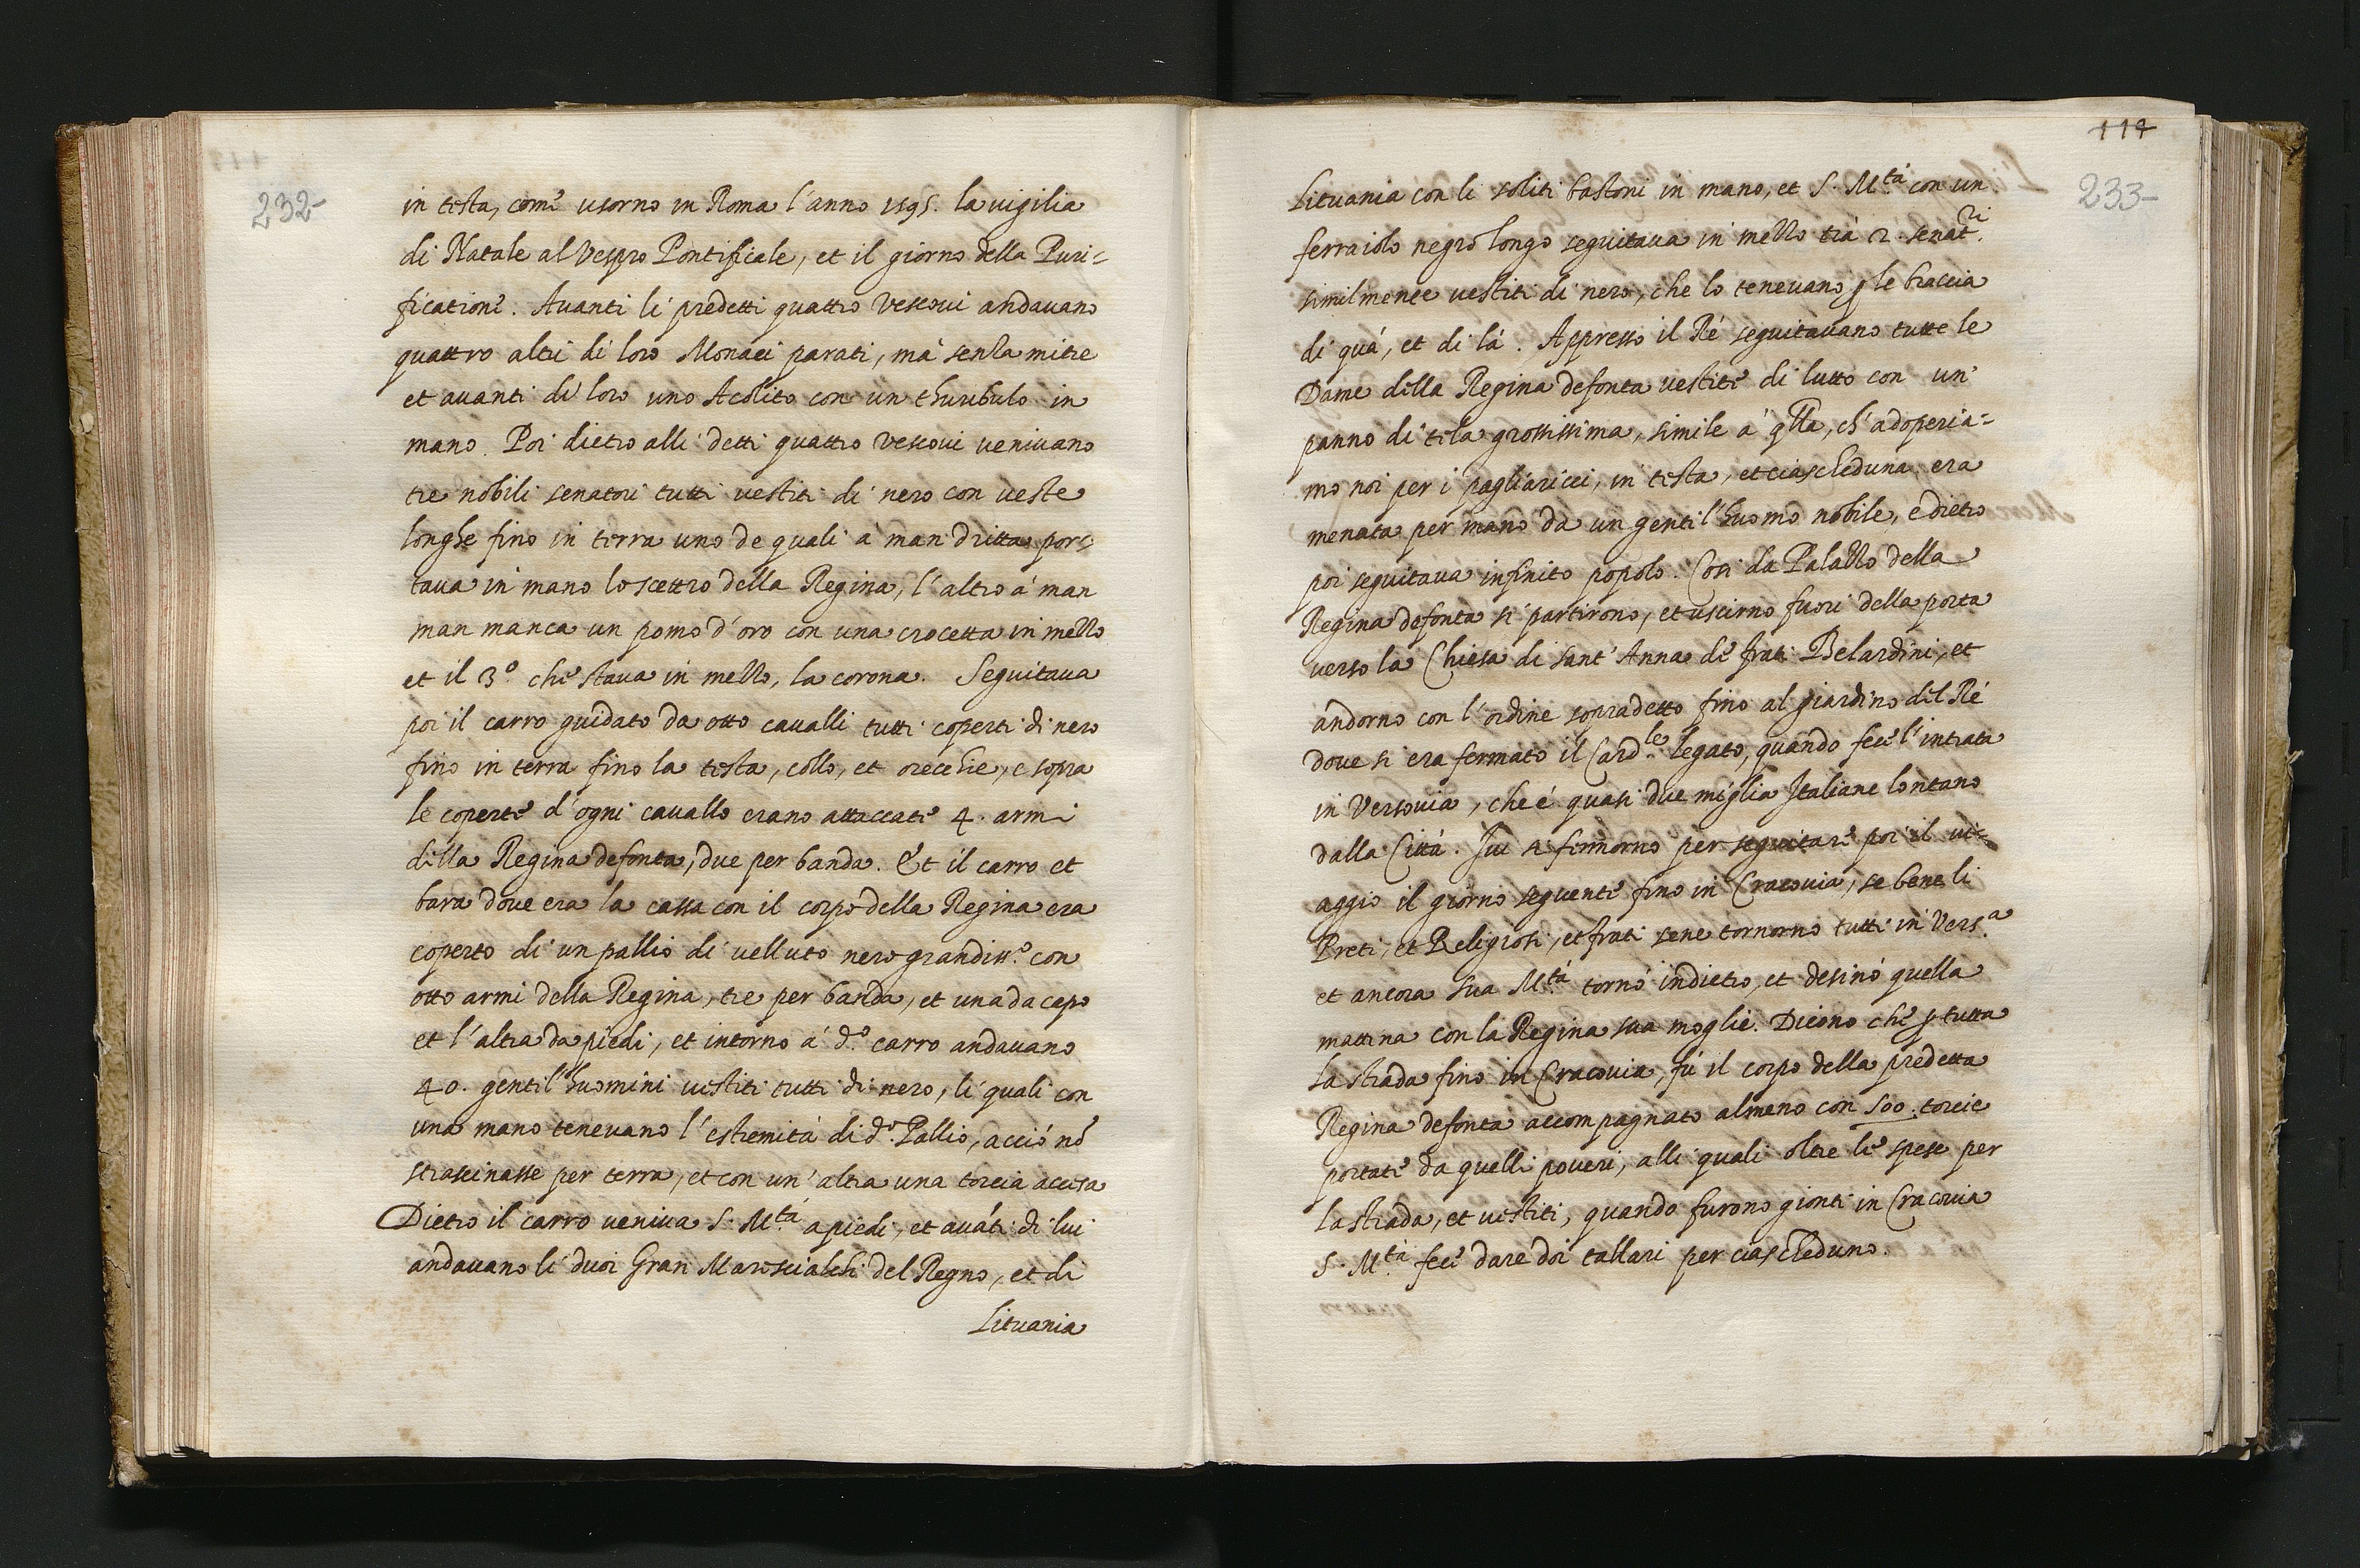 232-
in testa, come usorno in Roma l'anno 1595. la vigilia
di Natale al Vespro Pontificale, et il giorno della Puri=
ficatione. Avanti li predetti quattro Vescovi andavano
quattro altri di loro Monaci parati, mà senza mitre
et avanti di loro uno Acolito con un thuribulo in
mano. Poi dietro alli detti quattro Vescovi venivano
tre nobili senatori tutti vestiti di nero con veste
longhe fino in terra uno de quali à man dritta por=
tava in mano lo scettro della Regina, l'altro à man
man manca un pomo d'oro con una crocetta in mezzo
et il 3.º che stava in mezzo, la corona. Seguitava
poi il carro guidato da otto cavalli tutti coperti di nero
fino in terra fino la testa, collo, et orecchie, e sopra
le coperte d'ogni cavallo erano attaccate 4. armi
della Regina defonta, due per banda. Et il carro et
bara dove era la cassa con il corpo della Regina era
coperto di un pallio di velluto nero grandiss.º con
otto armi della Regina, tre per banda, et una da capo
et l'altra da piedi, et intorno à d.º carro andavano
40. gentil'huomini vestiti tutti di nero, li quali con
una mano tenevano l'estremità di d.º Pallio, acciò nõ
strascinasse per terra, et con un'altra una torcia accesa
Dietro il carro veniva S. M.tà a piedi, et avãti di lui
andavano li duoi Gran Marescialchi del Regno, et di
Lituania
114
233-
Lituania con li soliti bastoni in mano, et S. M.tà con un
ferraiolo negro longo seguitava in mezzo trà 2. senat.ri
similmente vestiti di nero, che lo tenevano p le braccia
di quà, et di là. Appresso il Rè seguitavano tutte le
Dame della Regina defonta vestite di lutto con un
panno di tela grossissima, simile à qlla, ch'adoperia=
mo noi per i pagliaricci, in testa, et ciascheduna era
menata per mano da un gentil'huomo nobile, e dietro
poi seguitava infinito popolo. Così da Palazzo della
Regina defonta si partirono, et uscirno fuori della porta
verso la Chiesa di sant'Anna de frati Belardini, et
andorno con l'ordine sopradetto fino al giardino del Rè
dove si era fermato il Card.le Legato, quando fece l'intrata
in Versovia, che è quasi due miglia Italiane lontano
dalla Città. Ivi si fermorno per seguitare poi il vi=
aggio il giorno seguente fino in Cracovia, se bene li
Preti, et Religiosi, et frati sene tornorno tutti in Vers.a
et ancora sua M.tà tornò indietro, et desinò quella
mattina con la Regina sua moglie. Dicono che p tutta
la strada fino in Cracovia, fù il corpo della predetta
Regina defonta accompagnato almeno con 500. torcie
portate da quelli poveri, alli quali oltre le spese per
la strada, et vestiti, quando furono gionti in Cracovia
S. M.tà fece dare doi tallari per ciascheduno.